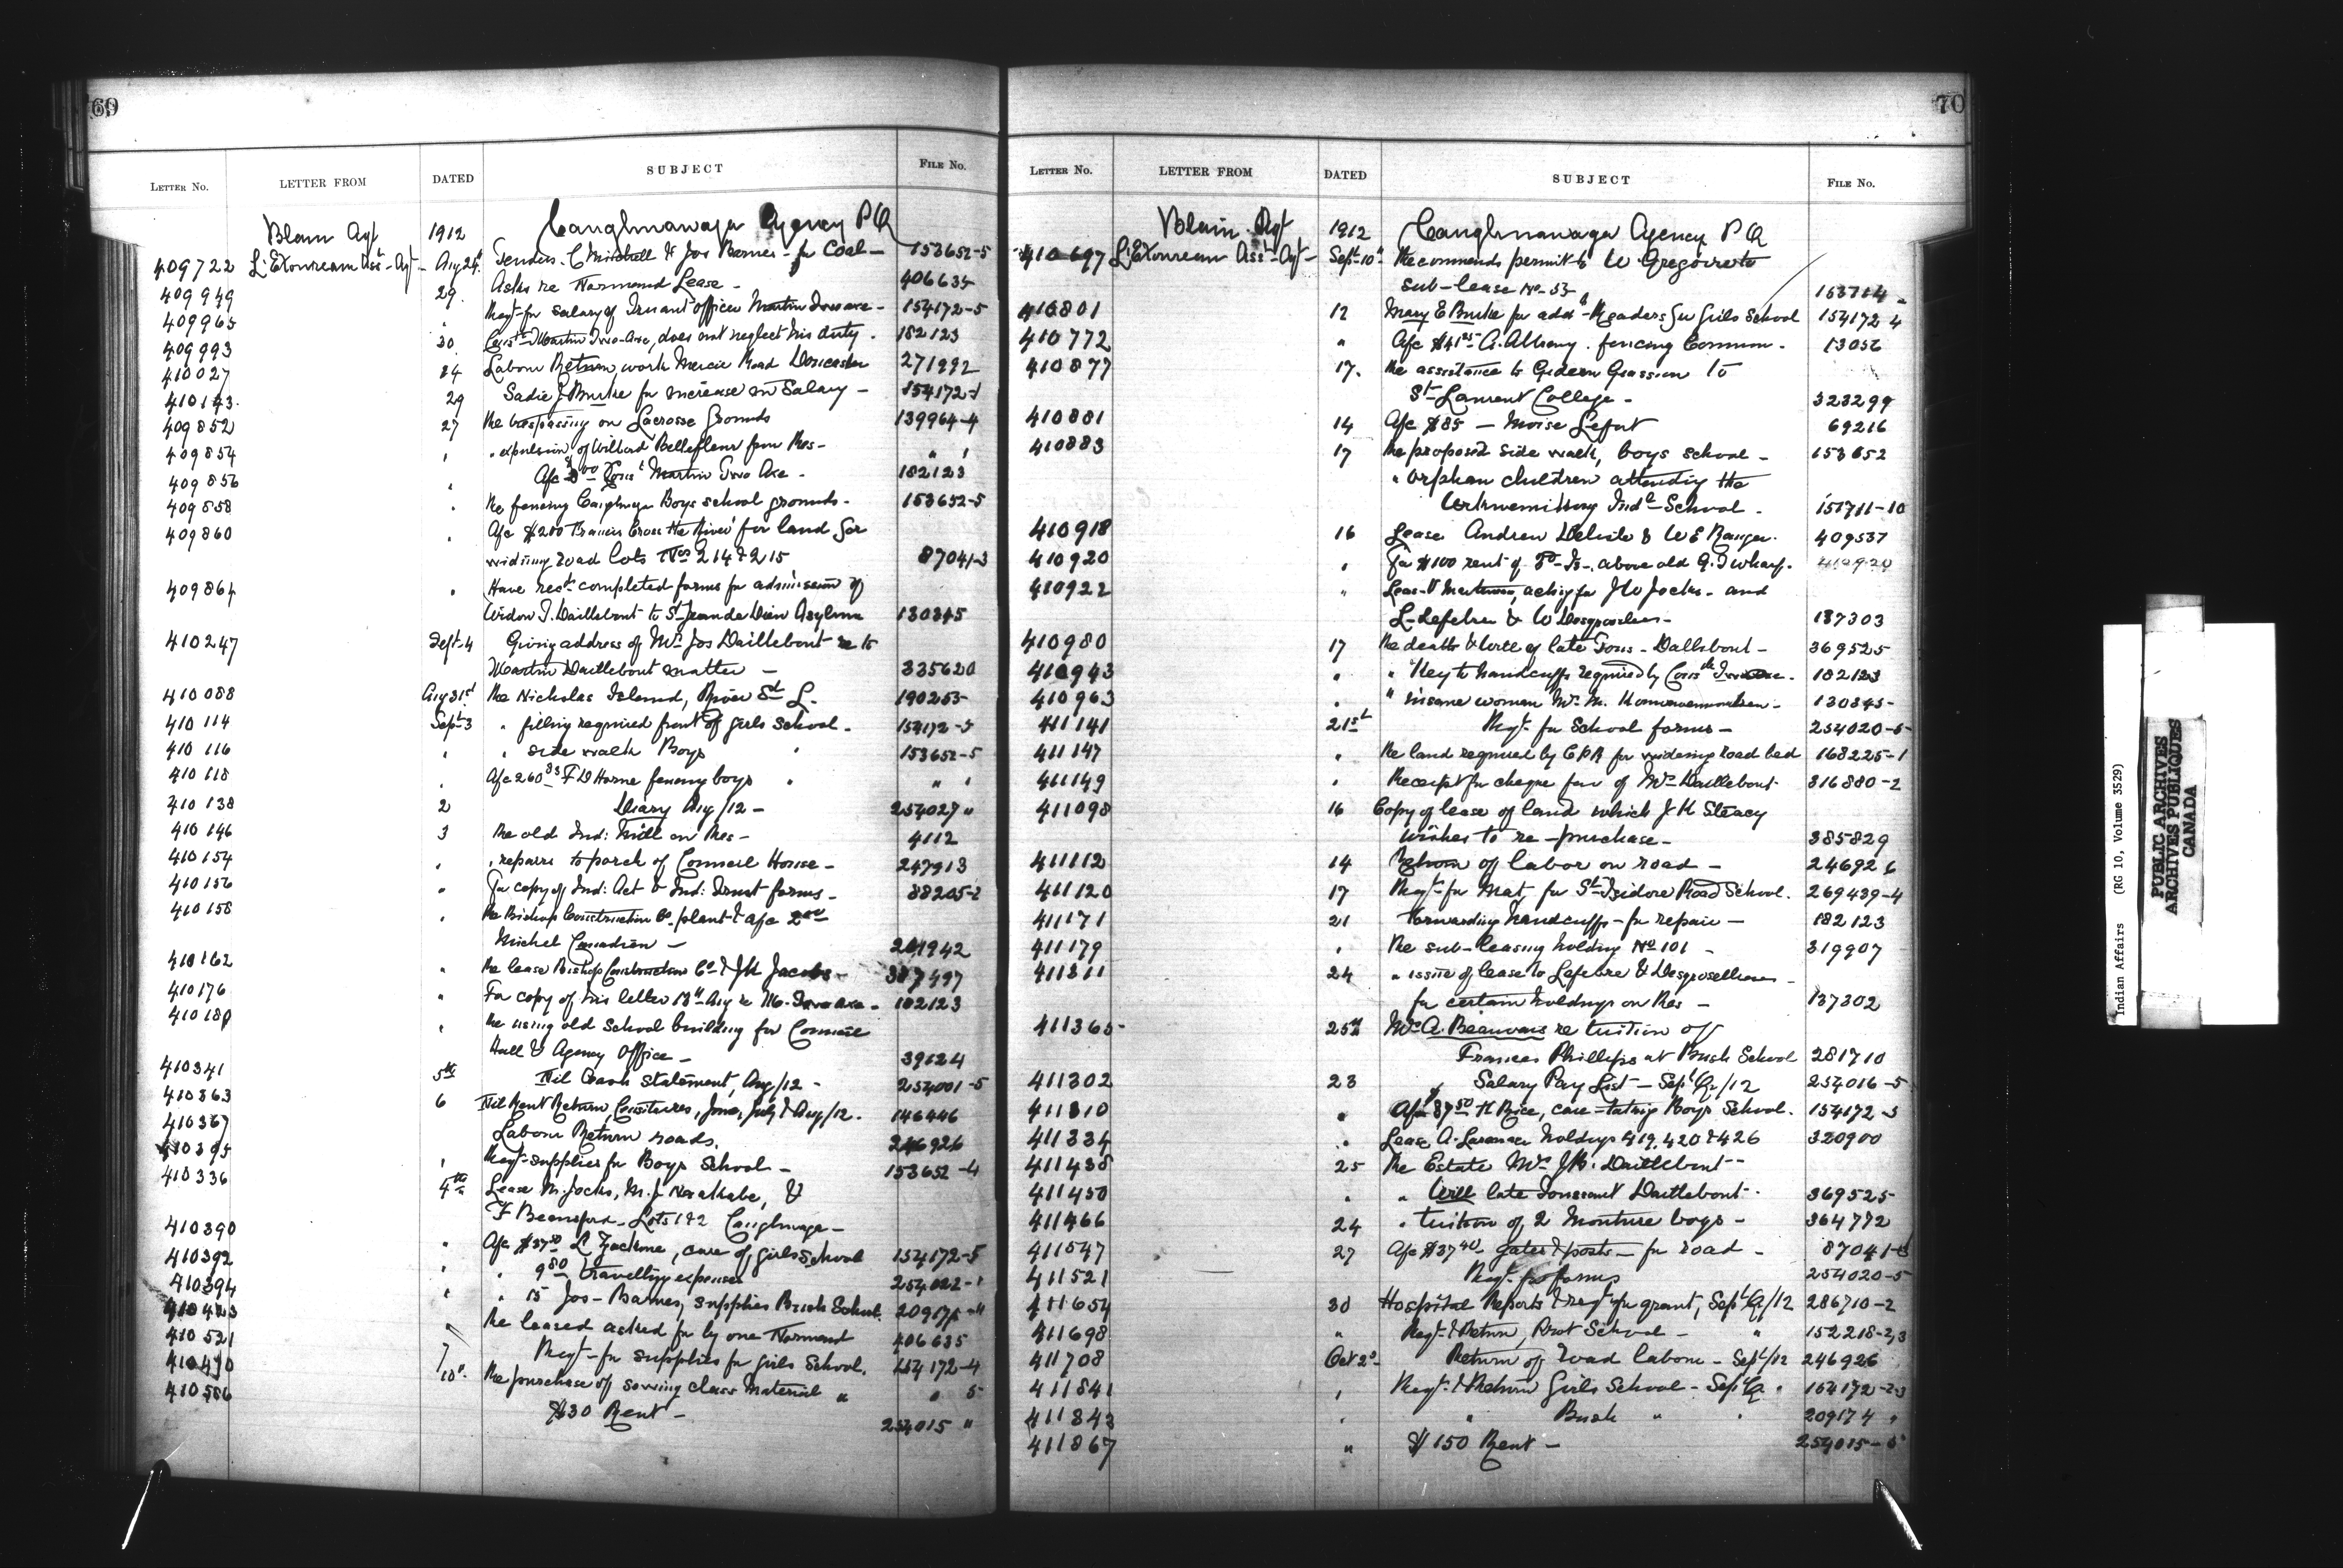 69
LETTER NO. LETTER FROM DATED SUBJECT FILE NO.
Blain Agt 1912 Caughnawaga Agency P Q
409722 Asst- Agt- Aug 24 Tenders. C Mitchell & Jos Barnes - for Coal - 153652-5
409949 29 Asks re Normand Lease - 406635
409965 " Reqt- for salary of Truant officer Martin Two axe - 154172-5
409993 30 Const- Martin Two-Axe, does not neglect his duty. 182123
410027 24 Labour Return, work Mercier Road Doncaster 271992
410143 29 Sadie J Burke for increase in Salary - 154172-1
409852 27 Re trespassing on Lacrosse Grounds 139964-4
409854 " " expulsion of Wilbrod Bellefleur from Res - " "
409856 " Afc Const Martin Two Axe - 182123
409858 " Re fencing Caughnaga Boys school grounds - 153652-5
409860 " Afc $200 Francis Cross the River for land for
widning road lots Nos 214 & 215 87041-3
409864 " Have recd completed forms for admission of
Widow J. Daillebout to St Jean de Dieu Asylum 130345
410247 Sept-4 Giving address of Mrs Jos Daillebout re to
Martin Daillebout matter - 335620
410088 Aug 31st Re Nicholas Island, River St L. 190253-
410114 Sept-3 " filling required front of girls school - 154172-5
410116 " " side walk Boys " 153652-5
410118 " Afc 260 F D Horne fencing boys " " "
410138 2 Diary Aug/12 - 254027 "
410146 3 Re old Ind: Mill on Res - 4112
410154 " " repairs to porch of Council House - 247913
410156 " For copy of Ind: Act & Ind: Trust forms - 88205-2
410158 " Re Bishop Construction Co. plant & afc
Michel - 201942
410162 " Re lease Bishop Construction Co & J K Jacobs - 387497
410176 " For copy of his letter 13th Aug re M. Two axe - 182123
410180 " Re using old School building for Council
Hall & Agency Office - 39124
410341 5th Nil Cash Statement, Aug/12 - 254001-5
410363 6 Nil Rent Return, June, July & Aug/12. 146446
410367 Labour Return roads. 246926
410395 " Reqt- supplies for Boys School - 153652-4
410336 4th Lease M. Jocks, M. J &
F Lots 1 & 2 Caughnaga -
410390 " Afc $37 L care of, girls School 154172-5
410392 " " 9 80 travelling expenses 254022-1
410394 " " 15 Jos - Barnes, supplies Bush School 209174-4
410423 Re leased asked for by one Normand 406635
410521 7 Reqt - for supplies for girls School. 154172-4
410490 10" Re purchase of sewing class material " " 5
410586 $30 Rent - 254015 "
70
LETTER NO. LETTER FROM DATED SUBJECT FILE NO.
Blain Agt 1912 Caughnawaga Agency P Q
410697 Asst- Agt- Sept-10" Recommends permit to W Gregoire to
sub-lease No- 53 153714
410801 12 Mary E Burke for addl Readers for Girls School 154172-4
410772 " Afc $41 A. Albany. fencing Common - 13056
410877 17. Re assistance to Gideon to
St- Laurent College - 323299
410881 14 Afc $85 - Moise Lefort 69216
410883 17 Re proposed side walk, boys school - 153652
" orphan children attending the
Indl - School. 151711-10
410918 16 Lease Andrew Delisle & W E Ranger. 409537
410920 " For $100 rent of above old G. T wharf. 410920
410922 " acting for J W Jocks - and
L Lefebvre & W 137303
410980 17 Re death & will of late Tous - Dallebout - 369525
410943 " " Key to handcuffs required by Const Two axe - 182123
410963 " " insane woman Mrs M. 130345-
411141 21st Reqt- for School forms - 254020-5
411147 " Re land required by C P R for widening road bed 168225-1
411149 " Receipt for cheque favr of Mrs Daillebout 316880-2
411098 16 Copy of lease of land which J K Steacy
wishes to re-purchase - 385829
411112 14 Return of labor on road - 246926
411120 17 Reqt- for Mat, for St- Isidore Road School. 269439-4
411171 21 Forwarding handcuffs - for repair - 182123
411179 " Re sub-leasing holding No 101 - 319907
411311 24 " issue of lease to Lefebvre & Desgroseilliers -
for certain holdings on Res - 137302
411365- 25th Mrs A. Beauvais re tuition of
Frances Phillips at Bush School 281710
411302 23 Salary Pay List - Sept Qr/12 254016-5
411310 " Afc 87 50 H Rice, care-taking Boys School. 154172-5
411334 " Lease A. Laronde holdings 419, 420 & 426 320900
411438 25 Re Estate Mrs J B. Daillebout -
411450 " " Will late Toussaint Daillebout - 369525
411466 24 " tuition of 2 Monture boys - 364772
411547 27 Afc $37 40 gates & posts - for road - 87041-3
411521 Reqt- for forms 254020-5
411654 30 Hospital Reports & reqt for grant, Sept Qr/12 286710-2
411698 " Reqt- & Return, Prot School - " 152218-2,3
411708 Oct 2d- Return of road labour - Sept/12 246926
411841 " Reqt- & Return Girls School - Sept Qr " 154172-2-3
411843 " " Bush " " 209174 "
411867 " $150 Rent - 254015-5
Indian Affairs (RG 10, Volume 3529)
PUBLIC ARCHIVES
ARCHIVES PUBLIQUES
CANADA